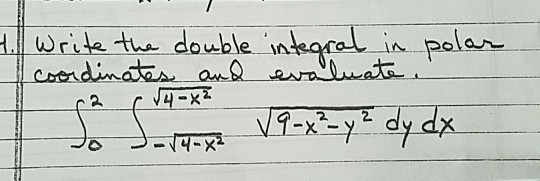 4. Write the double integral in polar
coordinates and evaluate.
∫₀² ∫_{-√(4-x²)}^{√(4-x²)} √(9-x²-y²) dy dx